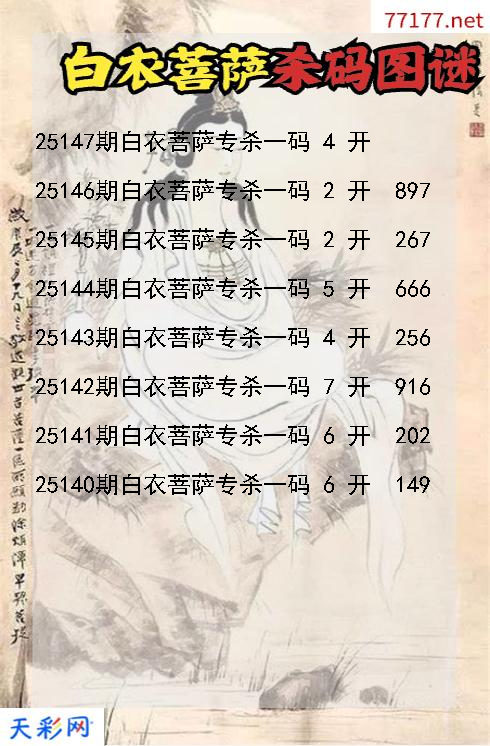 77177.net
白衣菩萨杀码图谜
25147期白衣菩萨专杀一码 4 开
25146期白衣菩萨专杀一码 2 开 897
25145期白衣菩萨专杀一码 2 开 267
25144期白衣菩萨专杀一码 5 开 666
25143期白衣菩萨专杀一码 4 开 256
25142期白衣菩萨专杀一码 7 开 916
25141期白衣菩萨专杀一码 6 开 202
25140期白衣菩萨专杀一码 6 开 149
天彩网